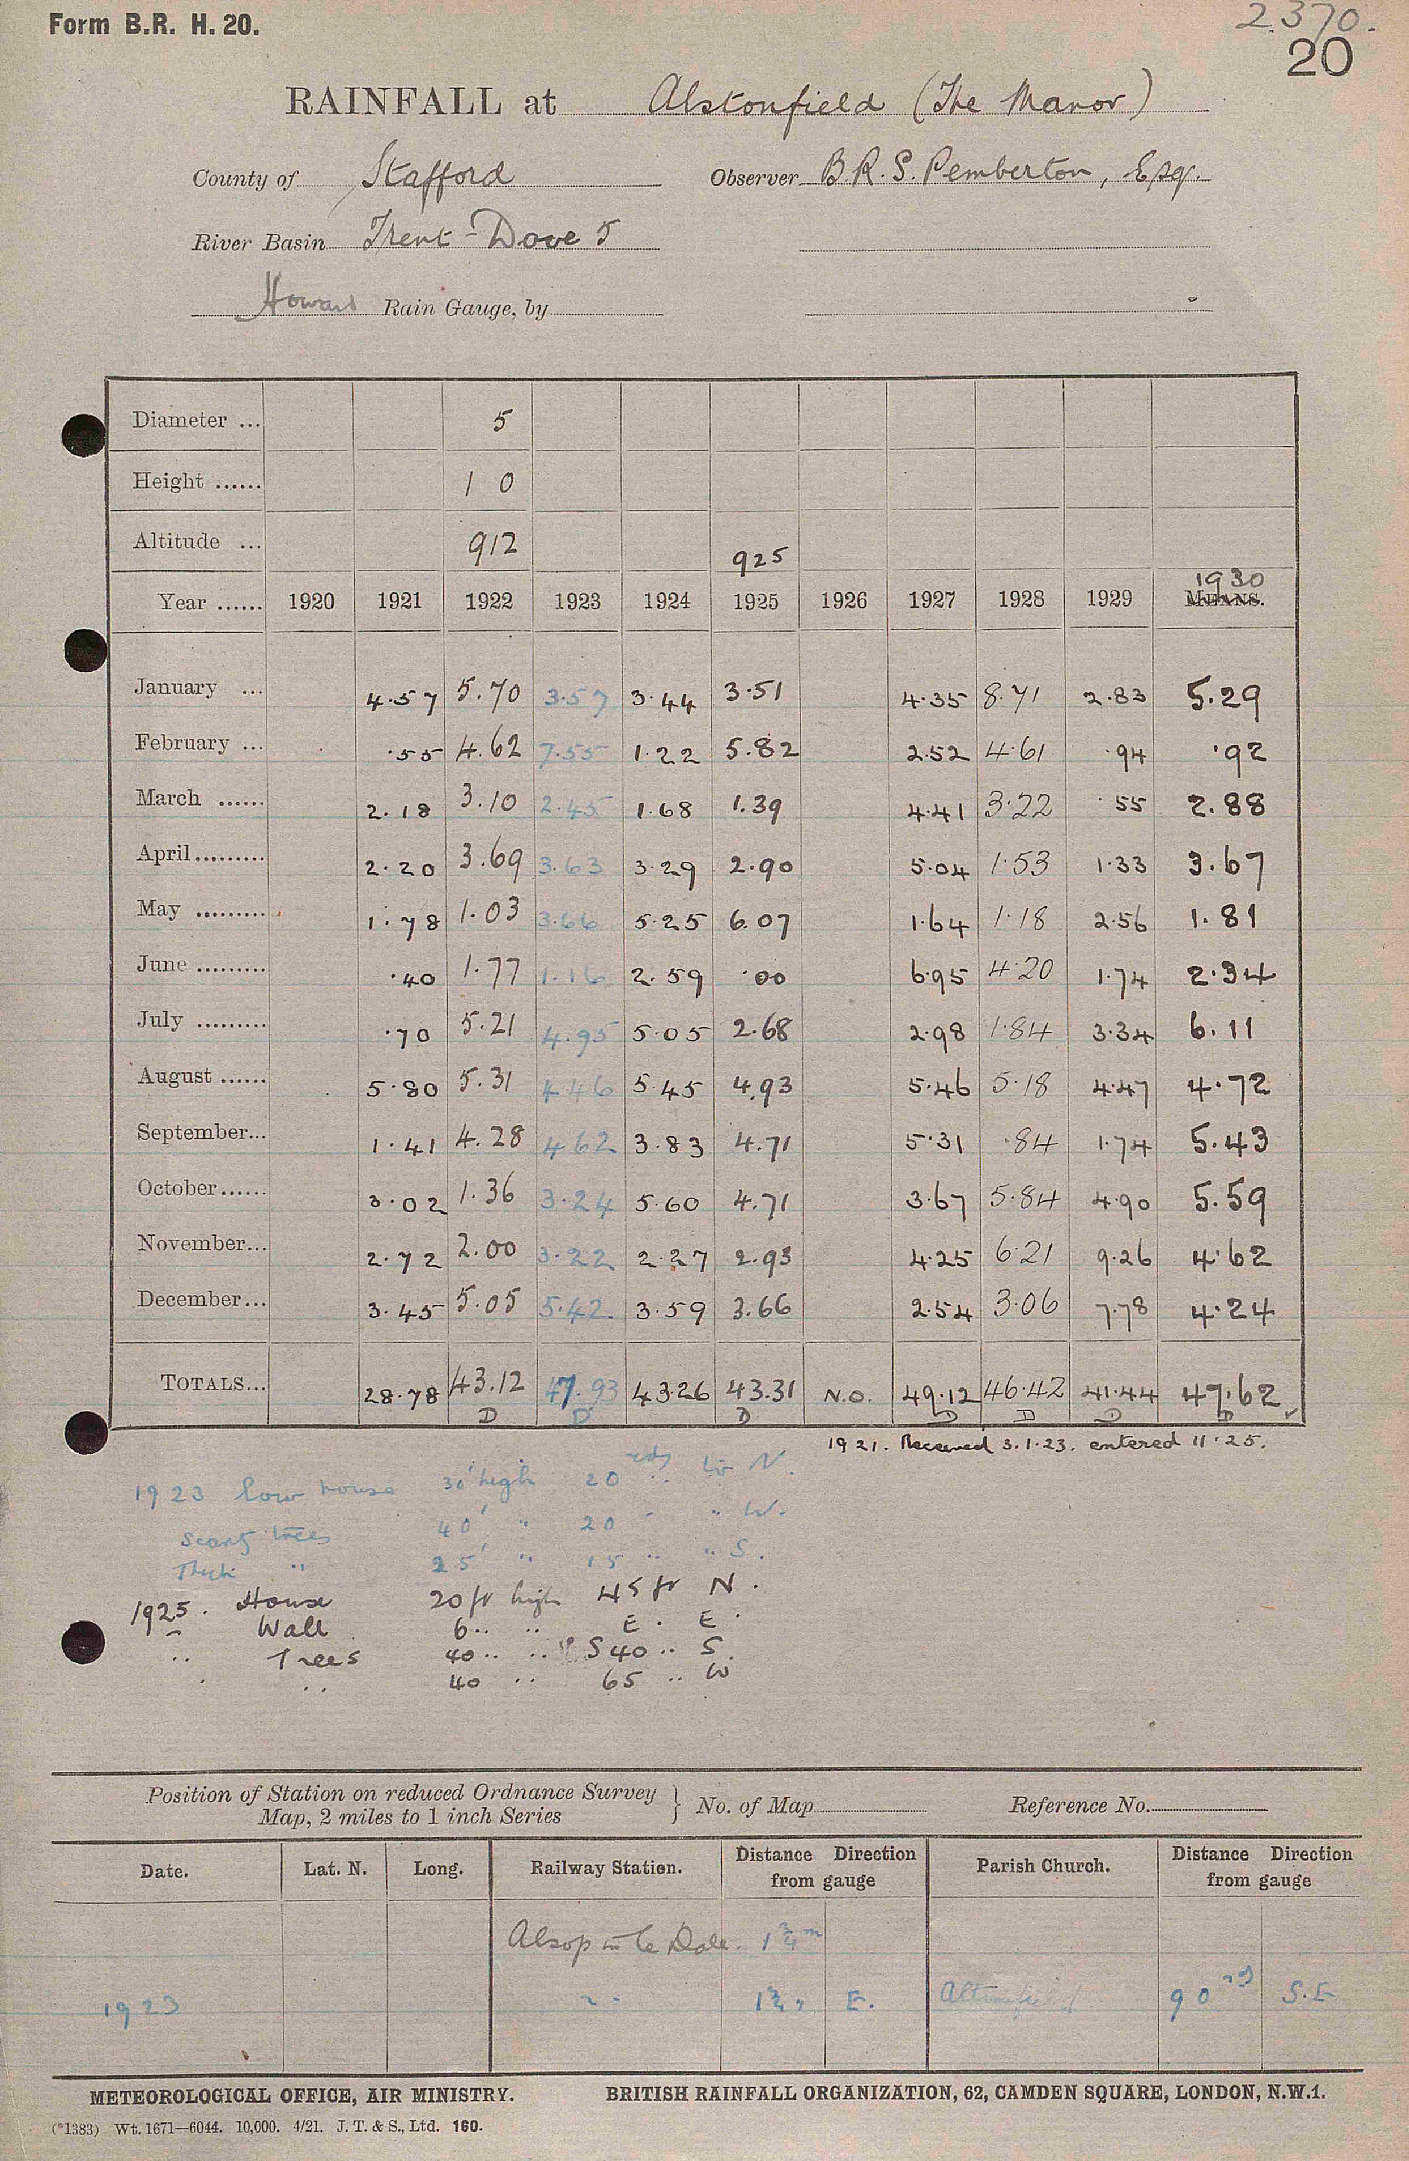 Form B.R. H. 20.
2370.
20
RAINFALL at Alstonfield (The Manor)
County of Stafford Observer B.R.S. Pemberton, Esq.
River Basin Trent - Dove 5
Howard Rain Gauge, by
Diameter ... 5
Height ...... 1 0
Altitude ... 912 925
1930
Year ...... 1920 1921 1922 1923 1924 1925 1926 1927 1928 1929 MEANS.
January ... 4.57 5.70 3.57 3.44 3.51 4.35 8.71 2.83 5.29
February ... .55 4.62 7.55 1.22 5.82 2.52 4.61 .94 .92
March ...... 2.18 3.10 2.45 1.68 1.39 4.41 3.22 .55 2.88
April......... 2.20 3.69 3.63 3.29 2.90 5.04 1.53 1.33 3.67
May ......... 1.78 1.03 3.66 5.25 6.07 1.64 1.18 2.56 1.81
June ......... .40 1.77 1.16 2.59 .00 6.95 4.20 1.74 2.34
July ......... .70 5.21 4.95 5.05 2.68 2.98 1.84 3.34 6.11
August ...... 5.80 5.31 4.46 5.45 4.93 5.46 5.18 4.47 4.72
September... 1.41 4.28 4.62 3.83 4.71 5.31 .84 1.74 5.43
October...... 3.02 1.36 3.24 5.60 4.71 3.67 5.84 4.90 5.59
November... 2.72 2.00 3.22 2.27 2.93 4.25 6.21 9.26 4.62
December... 3.45 5.05 5.42 3.59 3.66 2.54 3.06 7.78 4.24
TOTALS... 28.78 43.12 47.93 43.26 43.31 N.O. 49.12 46.42 41.44 47.62
D D D D D D D
1921. Received 3.1.23. entered 11.25.
1923 Low house 30' high 20 yds to N.
Scanty trees 40' " 20 " " W.
Thick " 25' " 15 " " S.
1925. House 20 ft high 45 ft N.
" Wall 6 " " E. E.
" Trees 40 " " S 40 " S.
" " 40 " 65 " W
Position of Station on reduced Ordnance Survey Map, 2 miles to 1 inch Series } No. of Map Reference No.
Date. Lat. N. Long. Railway Station. Distance Direction from gauge Parish Church. Distance Direction from gauge
Alsop in le Dale. 1¾ m
1923 " " 1¾ " E. Alstonfield 90 yd S.E
METEOROLOGICAL OFFICE, AIR MINISTRY. BRITISH RAINFALL ORGANIZATION, 62, CAMDEN SQUARE, LONDON, N.W.1.
(*1383) Wt. 1671—6044. 10,000. 4/21. J. T. & S., Ltd. 160.